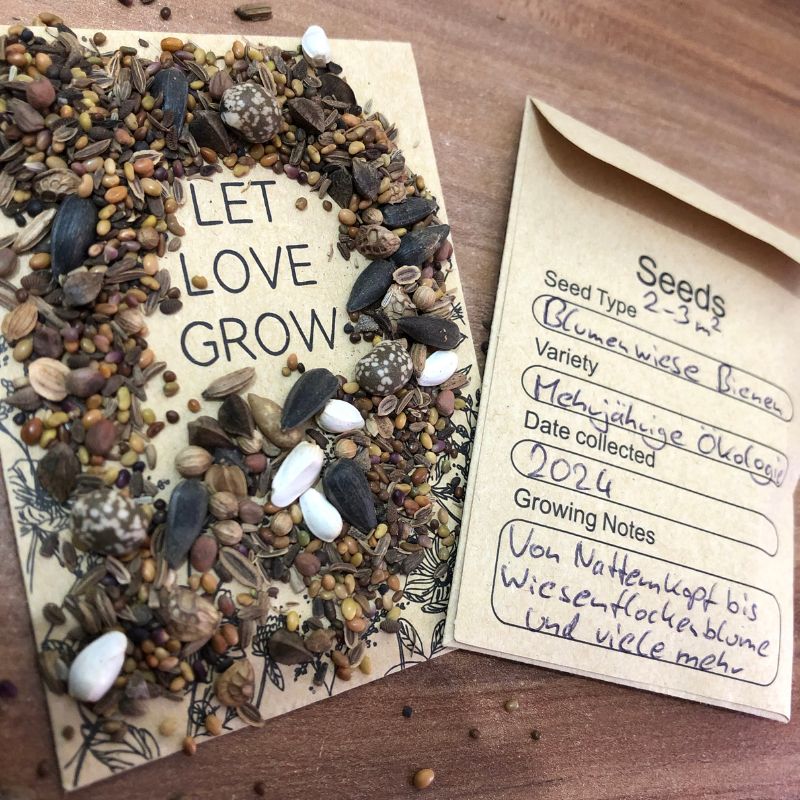 LET
LOVE
GROW
Seeds
Seed Type 2-3 m²
Blumenwiese Bienen
Variety
Mehrjährige Ökologie
Date collected
2024
Growing Notes
Von Natternkopf bis
Wiesenflockenblume
und viele mehr